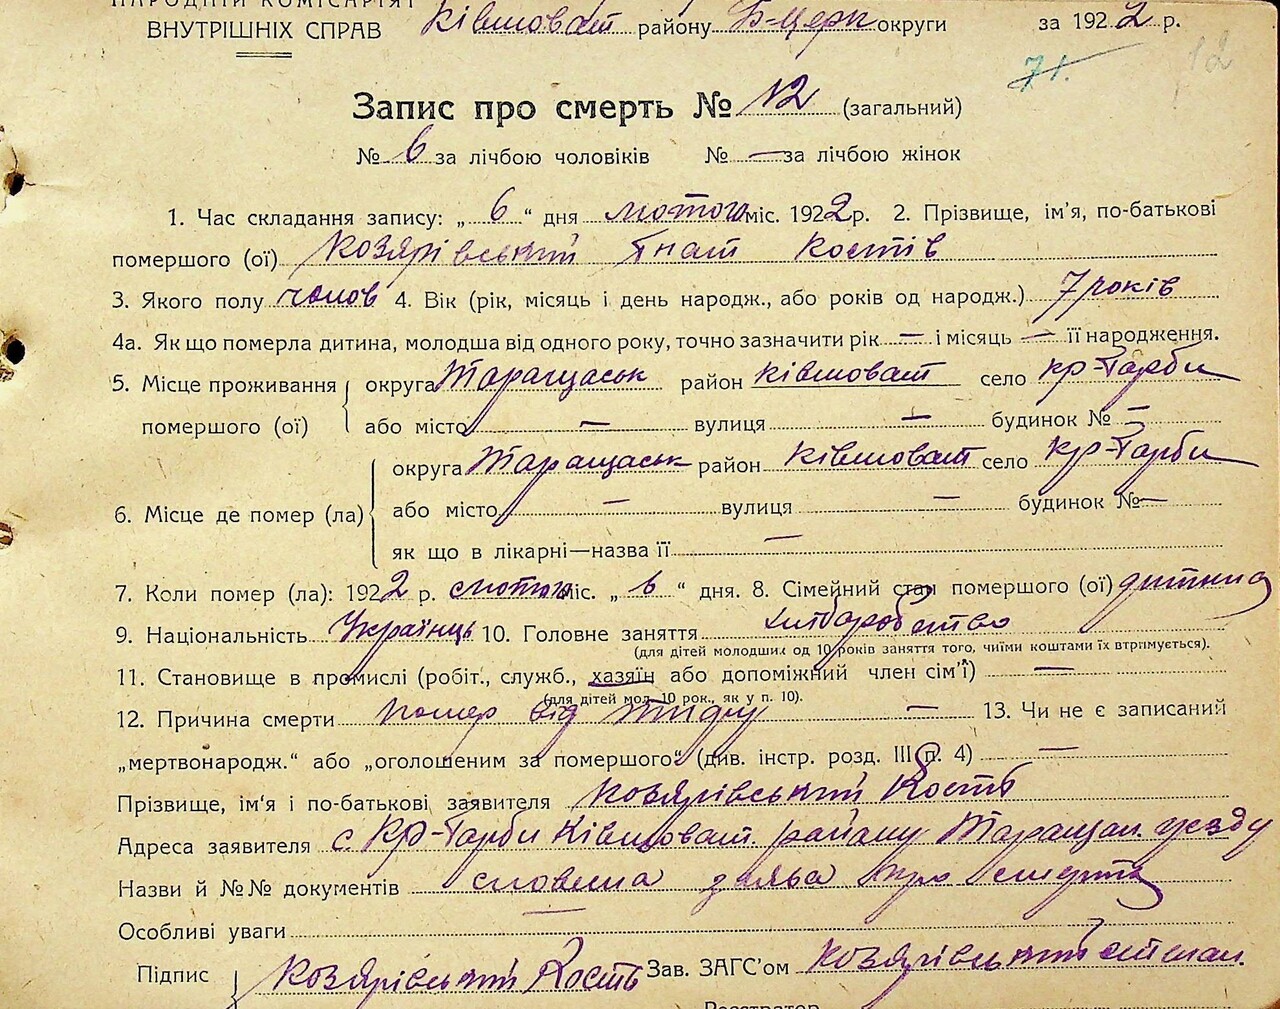 НАРОДНІЙ КОМІСАРІЯТ
ВНУТРІШНІХ СПРАВ Ківшоват району Б-церк округи за 1922 р.
71. 12
Запис про смерть № 12 (загальний)
№ 6 за лічбою чоловіків № — за лічбою жінок
1. Час складання запису: „ 6 “ дня лютого міс. 1922 р. 2. Прізвище, ім'я, по-батькові
помершого (ої) Козярівський Гнат Костів
3. Якого полу чолов 4. Вік (рік, місяць і день народж., або років од народж.) 7 років
4а. Як що померла дитина, молодша від одного року, точно зазначити рік — і місяць — її народження.
5. Місце проживання округа Таращаськ район Ківшоват село Кр-Гарби
помершого (ої) або місто — вулиця — будинок № —
округа Таращаськ район Ківшоват село Кр-Гарби
6. Місце де помер (ла) або місто — вулиця — будинок № —
як що в лікарні—назва її —
7. Коли помер (ла): 1922 р. лютого міс. „ 6 “ дня. 8. Сімейний стан помершого (ої) дитина
9. Національність Українць 10. Головне заняття хліборобство
(для дітей молодших од 10 років заняття того, чиїми коштами їх втримується).
11. Становище в промислі (робіт., служб., хазяїн або допоміжний член сім'ї) —
(для дітей мол. 10 рок., як у п. 10).
12. Причина смерти помер від тифу — 13. Чи не є записаний
„мертвонародж.“ або „оголошеним за помершого“ (див. інстр. розд. III п. 4) —
Прізвище, ім'я і по-батькові заявителя Козярівський Кость
Адреса заявителя с. Кр-Гарби Ківшоват. району Таращан. уезду
Назви й №№ документів словесна заява про смерть
Особливі уваги —
Підпис { Козярівський Кость Зав. ЗАГС'ом Козярівський
Реєстратор